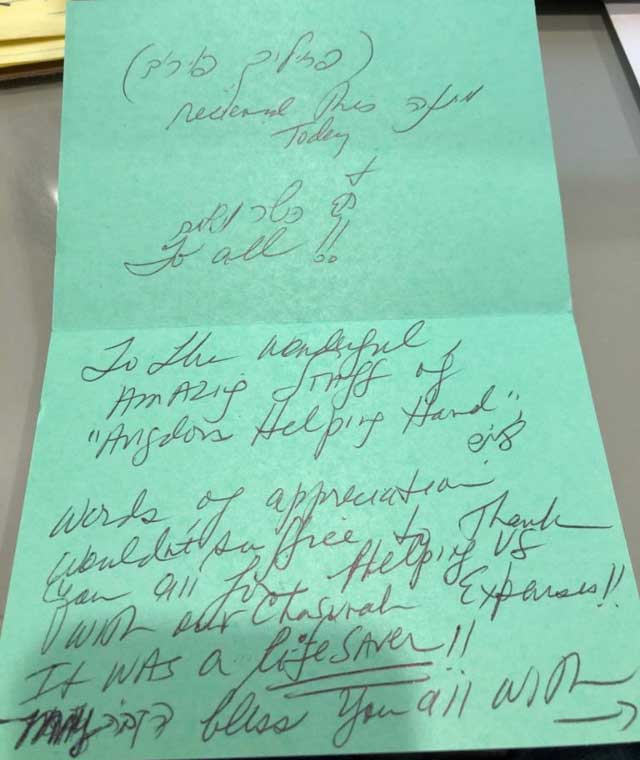 (פריליך פורים)
recieved This
Today
+
כשר
To all !!
To the wonderful,
AMAZIg STAFF of
"Avigdors Helping Hand",
Words of appreciation
wouldn't suffice to Thank
You all for Helping US
with our Chasunah Expenses!!
It WAS a lifeSAVER!!
MAY הקב"ה bless You all with
→